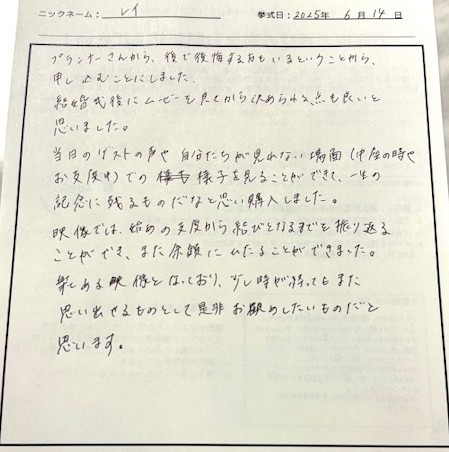 ニックネーム： レイ 挙式日：2025年 6月 14日
プランナーさんから、後で後悔する方もいるということから、
申し込むことにしました。
結婚式後にムービーを見てから決められる点も良いと
思いました。
当日のゲストの声や自分たちが見れない場面（中座の時や
お支度中）での様子を見ることができて、一生の
記念に残るものだなと思い購入しました。
映像では、始めの支度から結びとなるまでを振り返る
ことができ、また余韻にひたることができました。
ある映像となっており、少し時が経ってもまた
思い出せるものとして是非お勧めしたいものだと
思います。